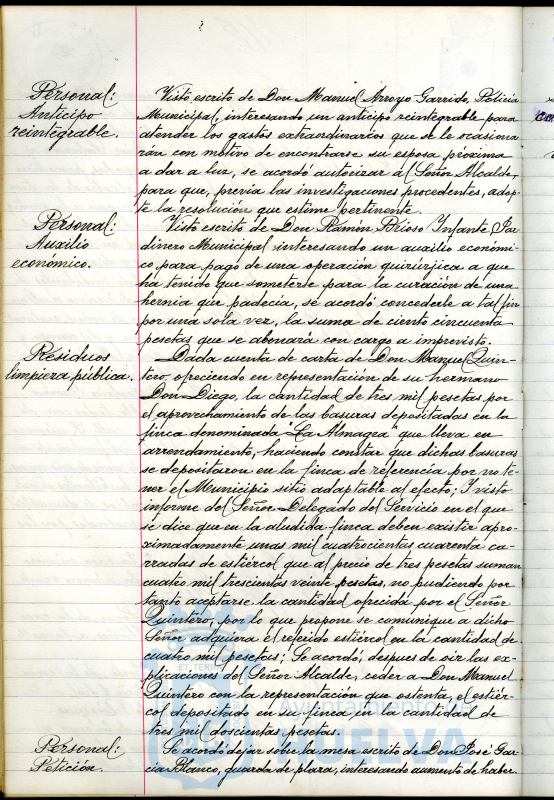 Personal:
Anticipo
reintegrable.
Visto escrito de Don Manuel Arroyo Garrido, Policía
Municipal, interesando un anticipo reintegrable para
atender los gastos extraordinarios que se le ocasiona
rán con motivo de encontrarse su esposa próxima
a dar a luz, se acordó autorizar al Señor Alcalde,
para que, previa las investigaciones procedentes, adop-
te la resolución que estime pertinente.
Personal:
Auxilio
económico.
Visto escrito de Don Ramón Brioso Infante, Jar
dinero Municipal, interesando un auxilio económi-
co para pago de una operación quirúrjica a que
ha tenido que someterse para la curación de una
hernia que padecía, se acordó concederle a tal fin
por una sola vez, la suma de ciento cincuenta
pesetas que se abonará con cargo a imprevisto.
Residuos
limpieza pública.
Dada cuenta de carta de Don Manuel Quin-
tero, ofreciendo en representación de su hermano
Don Diego, la cantidad de tres mil pesetas por
el aprovechamiento de las basuras depositadas en la
finca denominada "La Almagra" que lleva en
arrendamiento, haciendo constar que dichas basuras
se depositaron en la finca de referencia por no te-
ner el Municipio sitio adaptable al efecto; Y visto
informe del Señor Delegado del Servicio en el que
se dice que en la aludida finca deben existir apro-
ximadamente unas mil cuatrocientas cuarenta ca-
rradas de estiércol que al precio de tres pesetas suman
cuatro mil trescientas veinte pesetas, no pudiendo por
tanto aceptarse la cantidad ofrecida por el Señor
Quintero, por lo que propone se comunique a dicho
Señor adquiera el referido estiércol en la cantidad de
cuatro mil pesetas; Se acordó, despues de oir las ex-
plicaciones del Señor Alcalde, ceder a Don Manuel
Quintero con la representación que ostenta, el estiér-
col depositado en su finca en la cantidad de
tres mil doscientas pesetas.
Personal:
Petición.
Se acordó dejar sobre la mesa escrito de Don José Gar
cía Blanco, guarda de plaza, interesando aumento de haber.
Ayuntamiento de
HUELVA